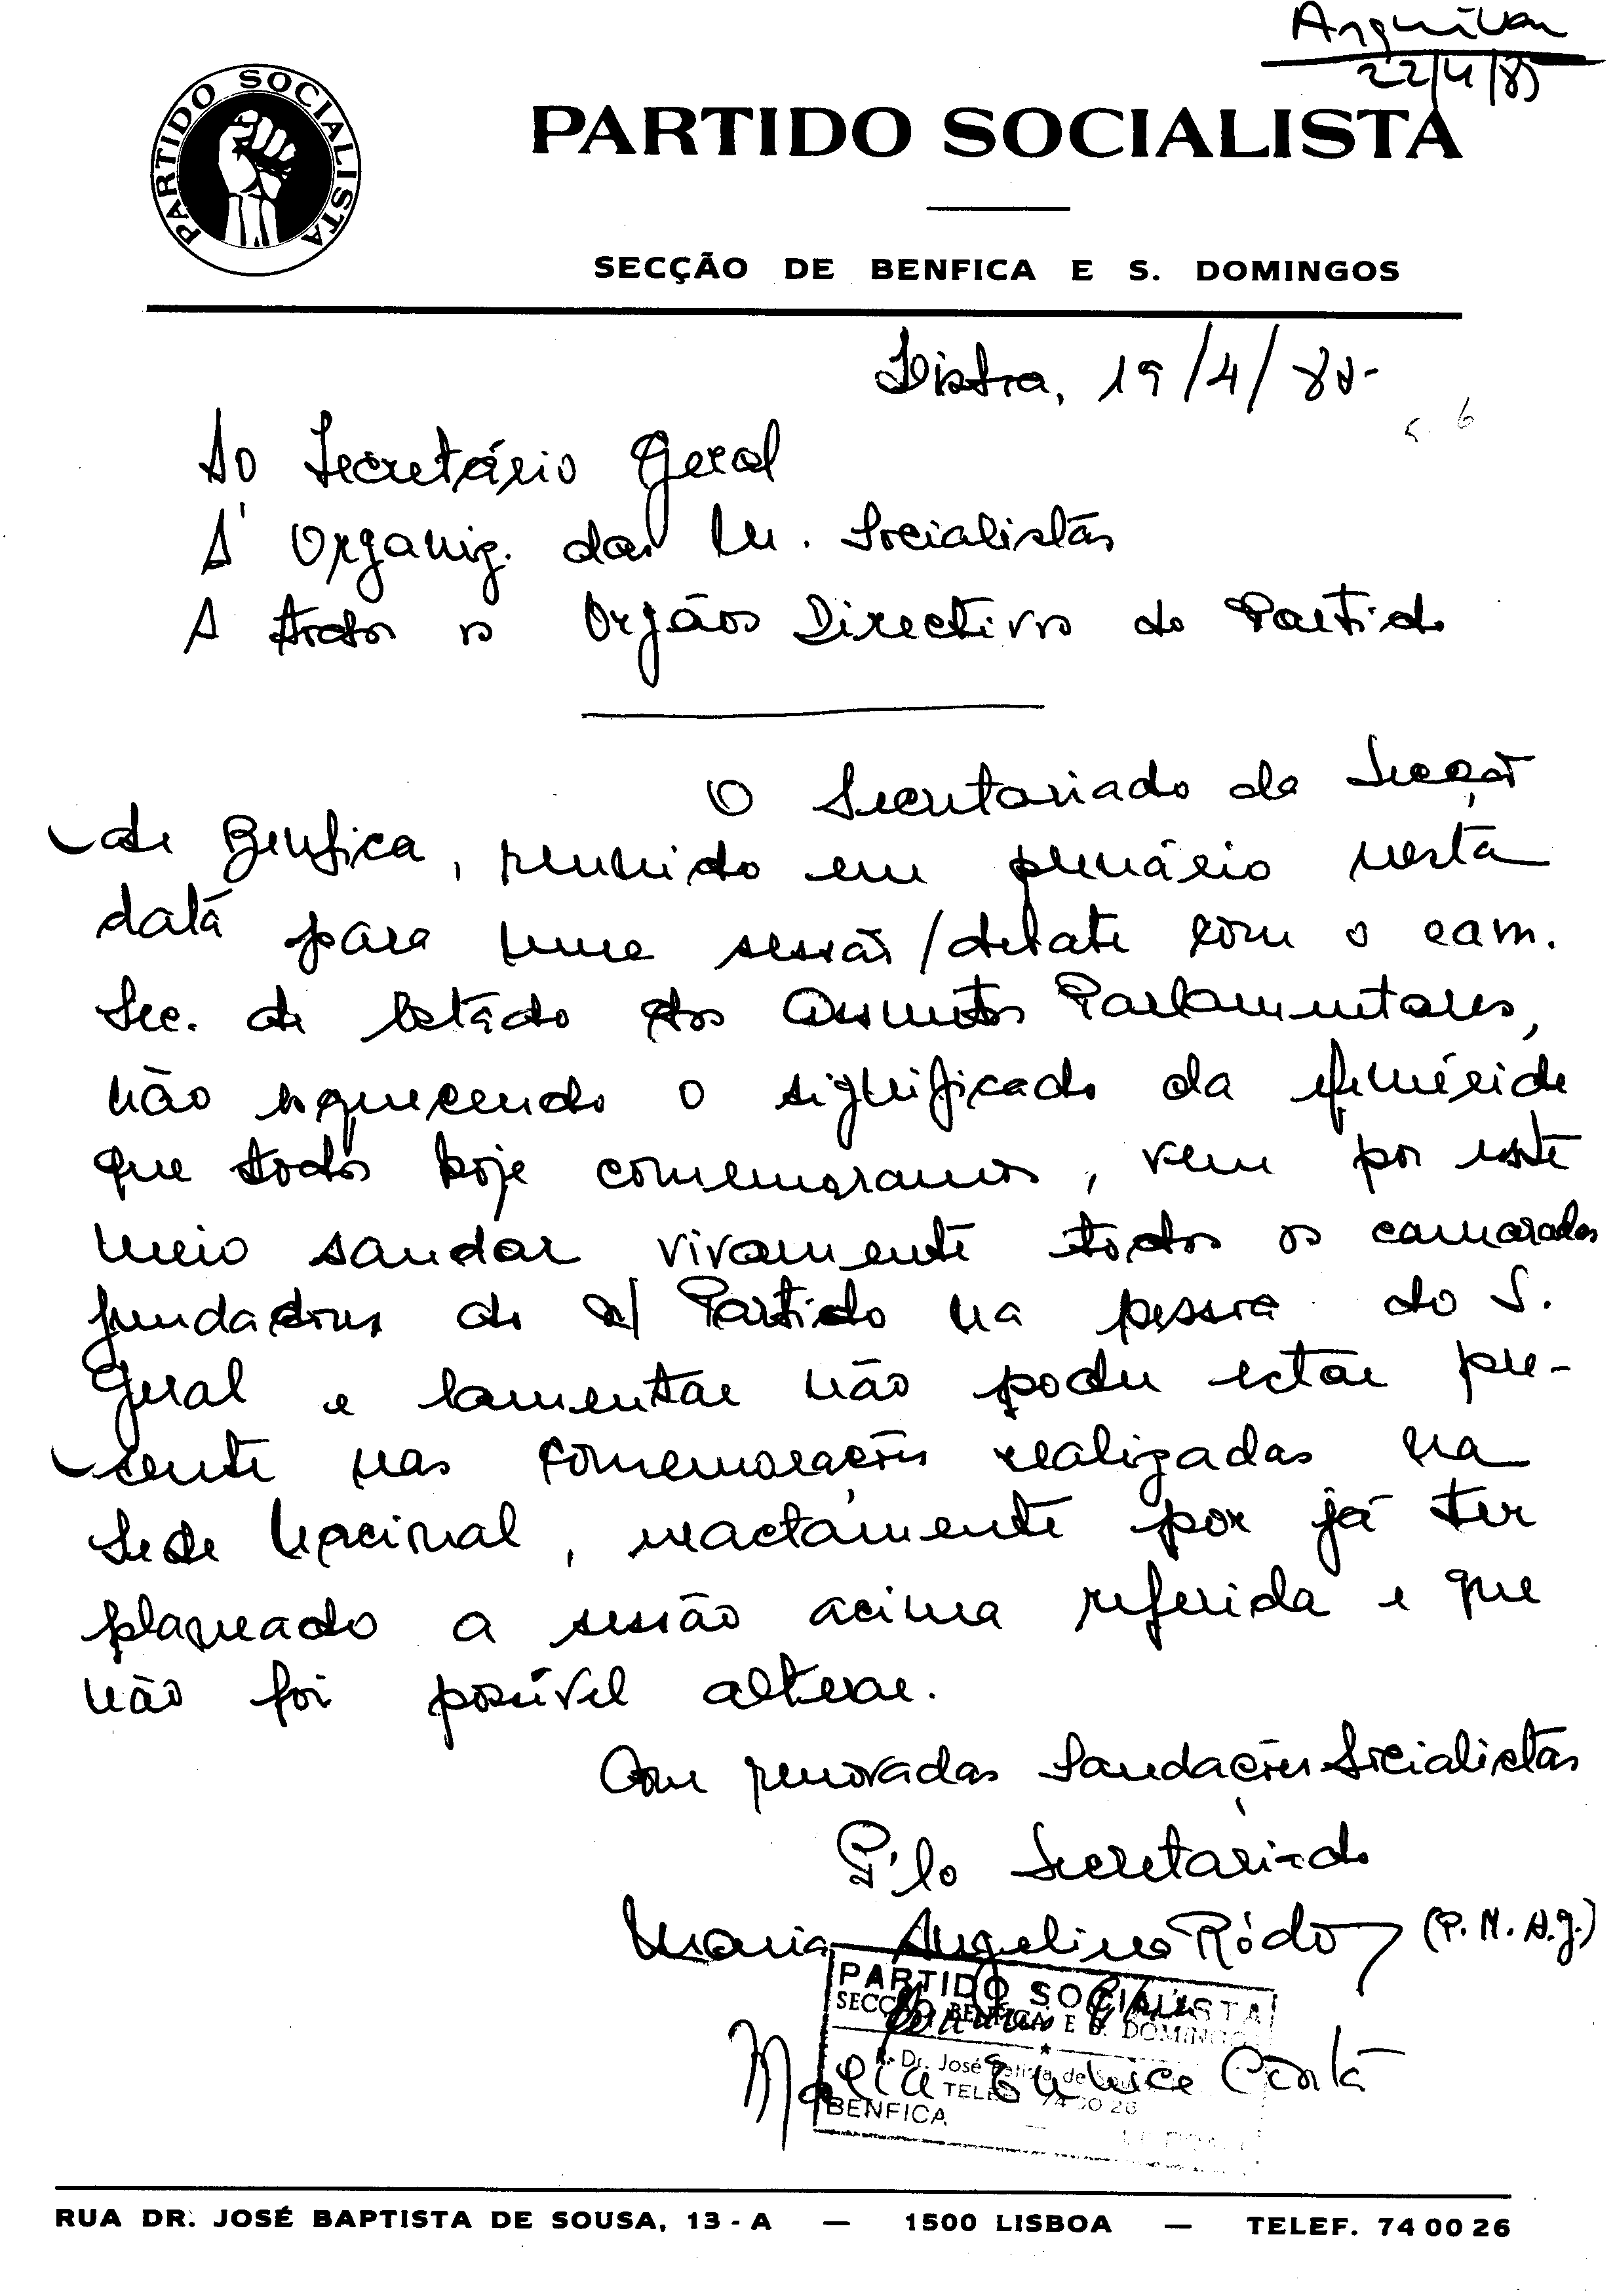 Arquivar
22/4/85
PARTIDO SOCIALISTA
PARTIDO SOCIALISTA
SECÇÃO DE BENFICA E S. DOMINGOS
Lisboa, 19/4/85
Ao Secretário Geral
À Organiz. das M. Socialistas
A todos os Orgãos Directivos do Partido
O Secretariado da Secção
de Benfica, reunido em plenário nesta
data para uma sessão/debate com o cam.
Sec. de Estado dos Assuntos Parlamentares,
não esquecendo o significado da efeméride
que todos hoje comemoramos, vem por este
meio saudar vivamente todos os camaradas
fundadores do n/ Partido na pessoa do S.
Geral e lamentar não poder estar pre-
sente nas comemorações realizadas na
Sede Nacional, exactamente por já ter
planeado a sessão acima referida e que
não foi possível alterar.
Com renovadas Saudações Socialistas
P'lo Secretariado
Maria Angelina Ródo (P.M.A.G.)
PARTIDO SOCIALISTA
SECÇÃO BENFICA E S. DOMINGOS
R. Dr. José Batista de Sousa
Maria Eunice Costa
TELEF. 74 00 26
BENFICA
RUA DR. JOSÉ BAPTISTA DE SOUSA, 13-A — 1500 LISBOA — TELEF. 74 00 26